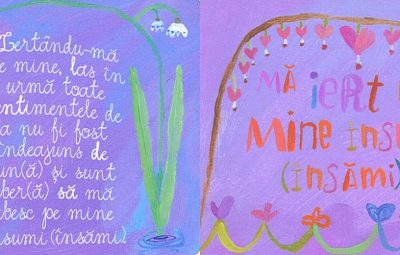 Iertându-mă
e mine, las în
urmă toate
sentimentele de
a nu fi fost
îndeajuns de
un(ă) și sunt
ber(ă) să mă
besc pe mine
sumi (însămi).
MĂ iERT
MiNE ÎNSU
(ÎNSĂMi)